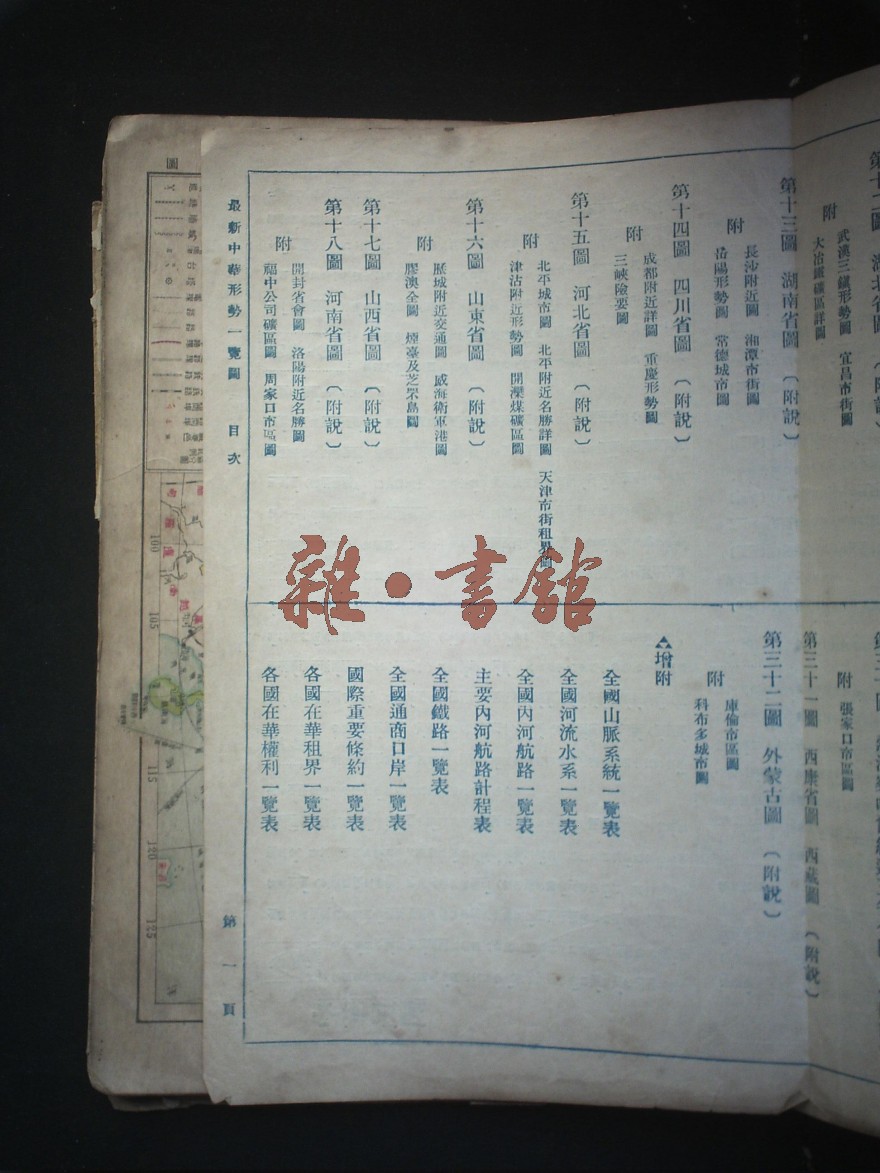 第十二圖 湖北省圖
附
武漢三鎮形勢圖 宜昌市街圖
大冶鐵礦區詳圖
第十三圖 湖南省圖 (附說)
附
長沙附近圖 湘潭市街圖
岳陽形勢圖 常德城市圖
第十四圖 四川省圖 (附說)
附
成都附近詳圖 重慶形勢圖
三峽險要圖
第十五圖 河北省圖 (附說)
附
北平城市圖 北平附近名勝詳圖 天津市街租界圖
津沽附近形勢圖 開灤煤礦區圖
第十六圖 山東省圖 (附說)
附
歷城附近交通圖 威海衛軍港圖
膠澳全圖 煙臺及芝罘島圖
第十七圖 山西省圖 (附說)
第十八圖 河南省圖 (附說)
附
開封省會圖 洛陽附近名勝圖
福中公司礦區圖 周家口市區圖
附
張家口市區圖
第三十一圖 西康省圖 西藏圖 (附說)
第三十二圖 外蒙古圖 (附說)
附
庫倫市區圖
科布多城市圖
增附
全國山脈系統一覽表
全國河流水系一覽表
全國內河航路一覽表
主要內河航路計程表
全國鐵路一覽表
全國通商口岸一覽表
國際重要條約一覽表
各國在華租界一覽表
各國在華權利一覽表
最新中華形勢一覽圖 目次
第一頁
圖
100
105
115
120
125
雜·書館